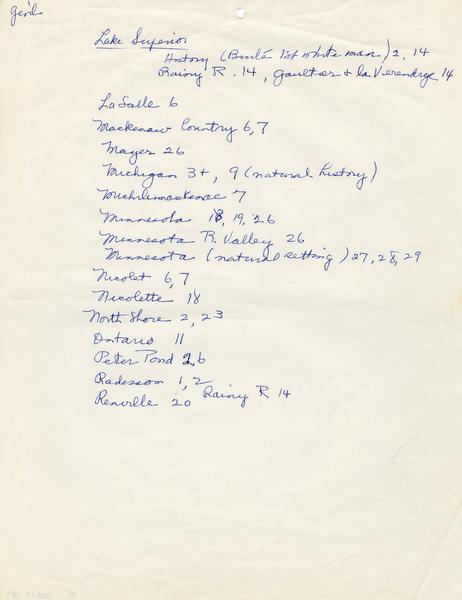 Lake Superior
History (Brulé 1st white man) 2, 14
Rainy R. 14, Gaultier & la Verendrye 14
LaSalle 6
Mackenaw Country 6, 7
Mayer 26
Michigan 3+, 9 (natural history)
Michilimackinac 7
Minnesota 18, 19, 26
Minnesota R. Valley 26
Minnesota (natural setting) 27, 28, 29
Nicolet 6, 7
Nicolette 18
North Shore 2, 23
Ontario 11
Peter Pond 26
Radisson 1, 2
Renville 20 Rainy R 14